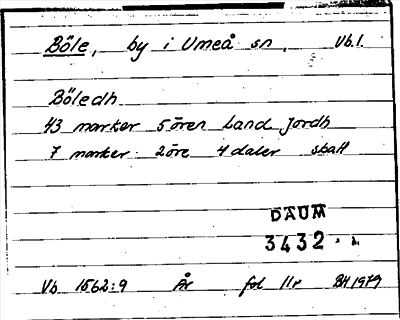 Böle, by i Umeå sn. Vb.l.
Böledh
43 marker 5 ören Land Jordh
7 marker 2 öre 4 daler skatt
DAUM
3432
Vb 1562:9 År fol 11r BH 1979